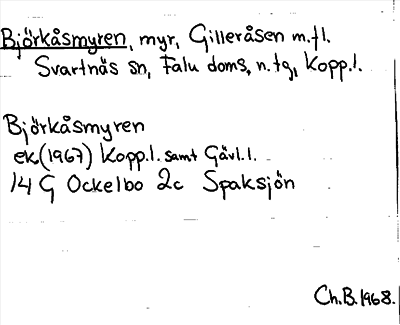 Björkåsmyren, myr, Gilleråsen m.fl.
Svartnäs sn, Falu doms, n.tg, Kopp.l.
Björkåsmyren
ek.(1967) Kopp.l. samt Gävl.l.
14 G Ockelbo 2c Spaksjön
Ch.B.1968.